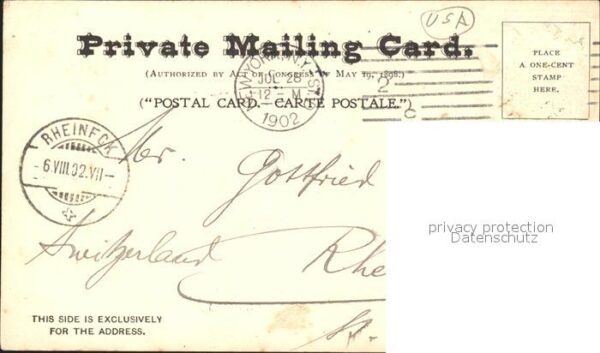 USA
Private Mailing Card.
(AUTHORIZED BY ACT OF CONGRESS OF MAY 19, 1898.)
("POSTAL CARD. - CARTE POSTALE.")
PLACE
A ONE-CENT
STAMP
HERE.
NEW YORK, N.Y.
JUL 28
12-M
1902
2
RHEINECK
-6.VIII.02.VII-
Mr. Gottfried
privacy protection
Datenschutz
Switzerland Rhe
St.
THIS SIDE IS EXCLUSIVELY
FOR THE ADDRESS.